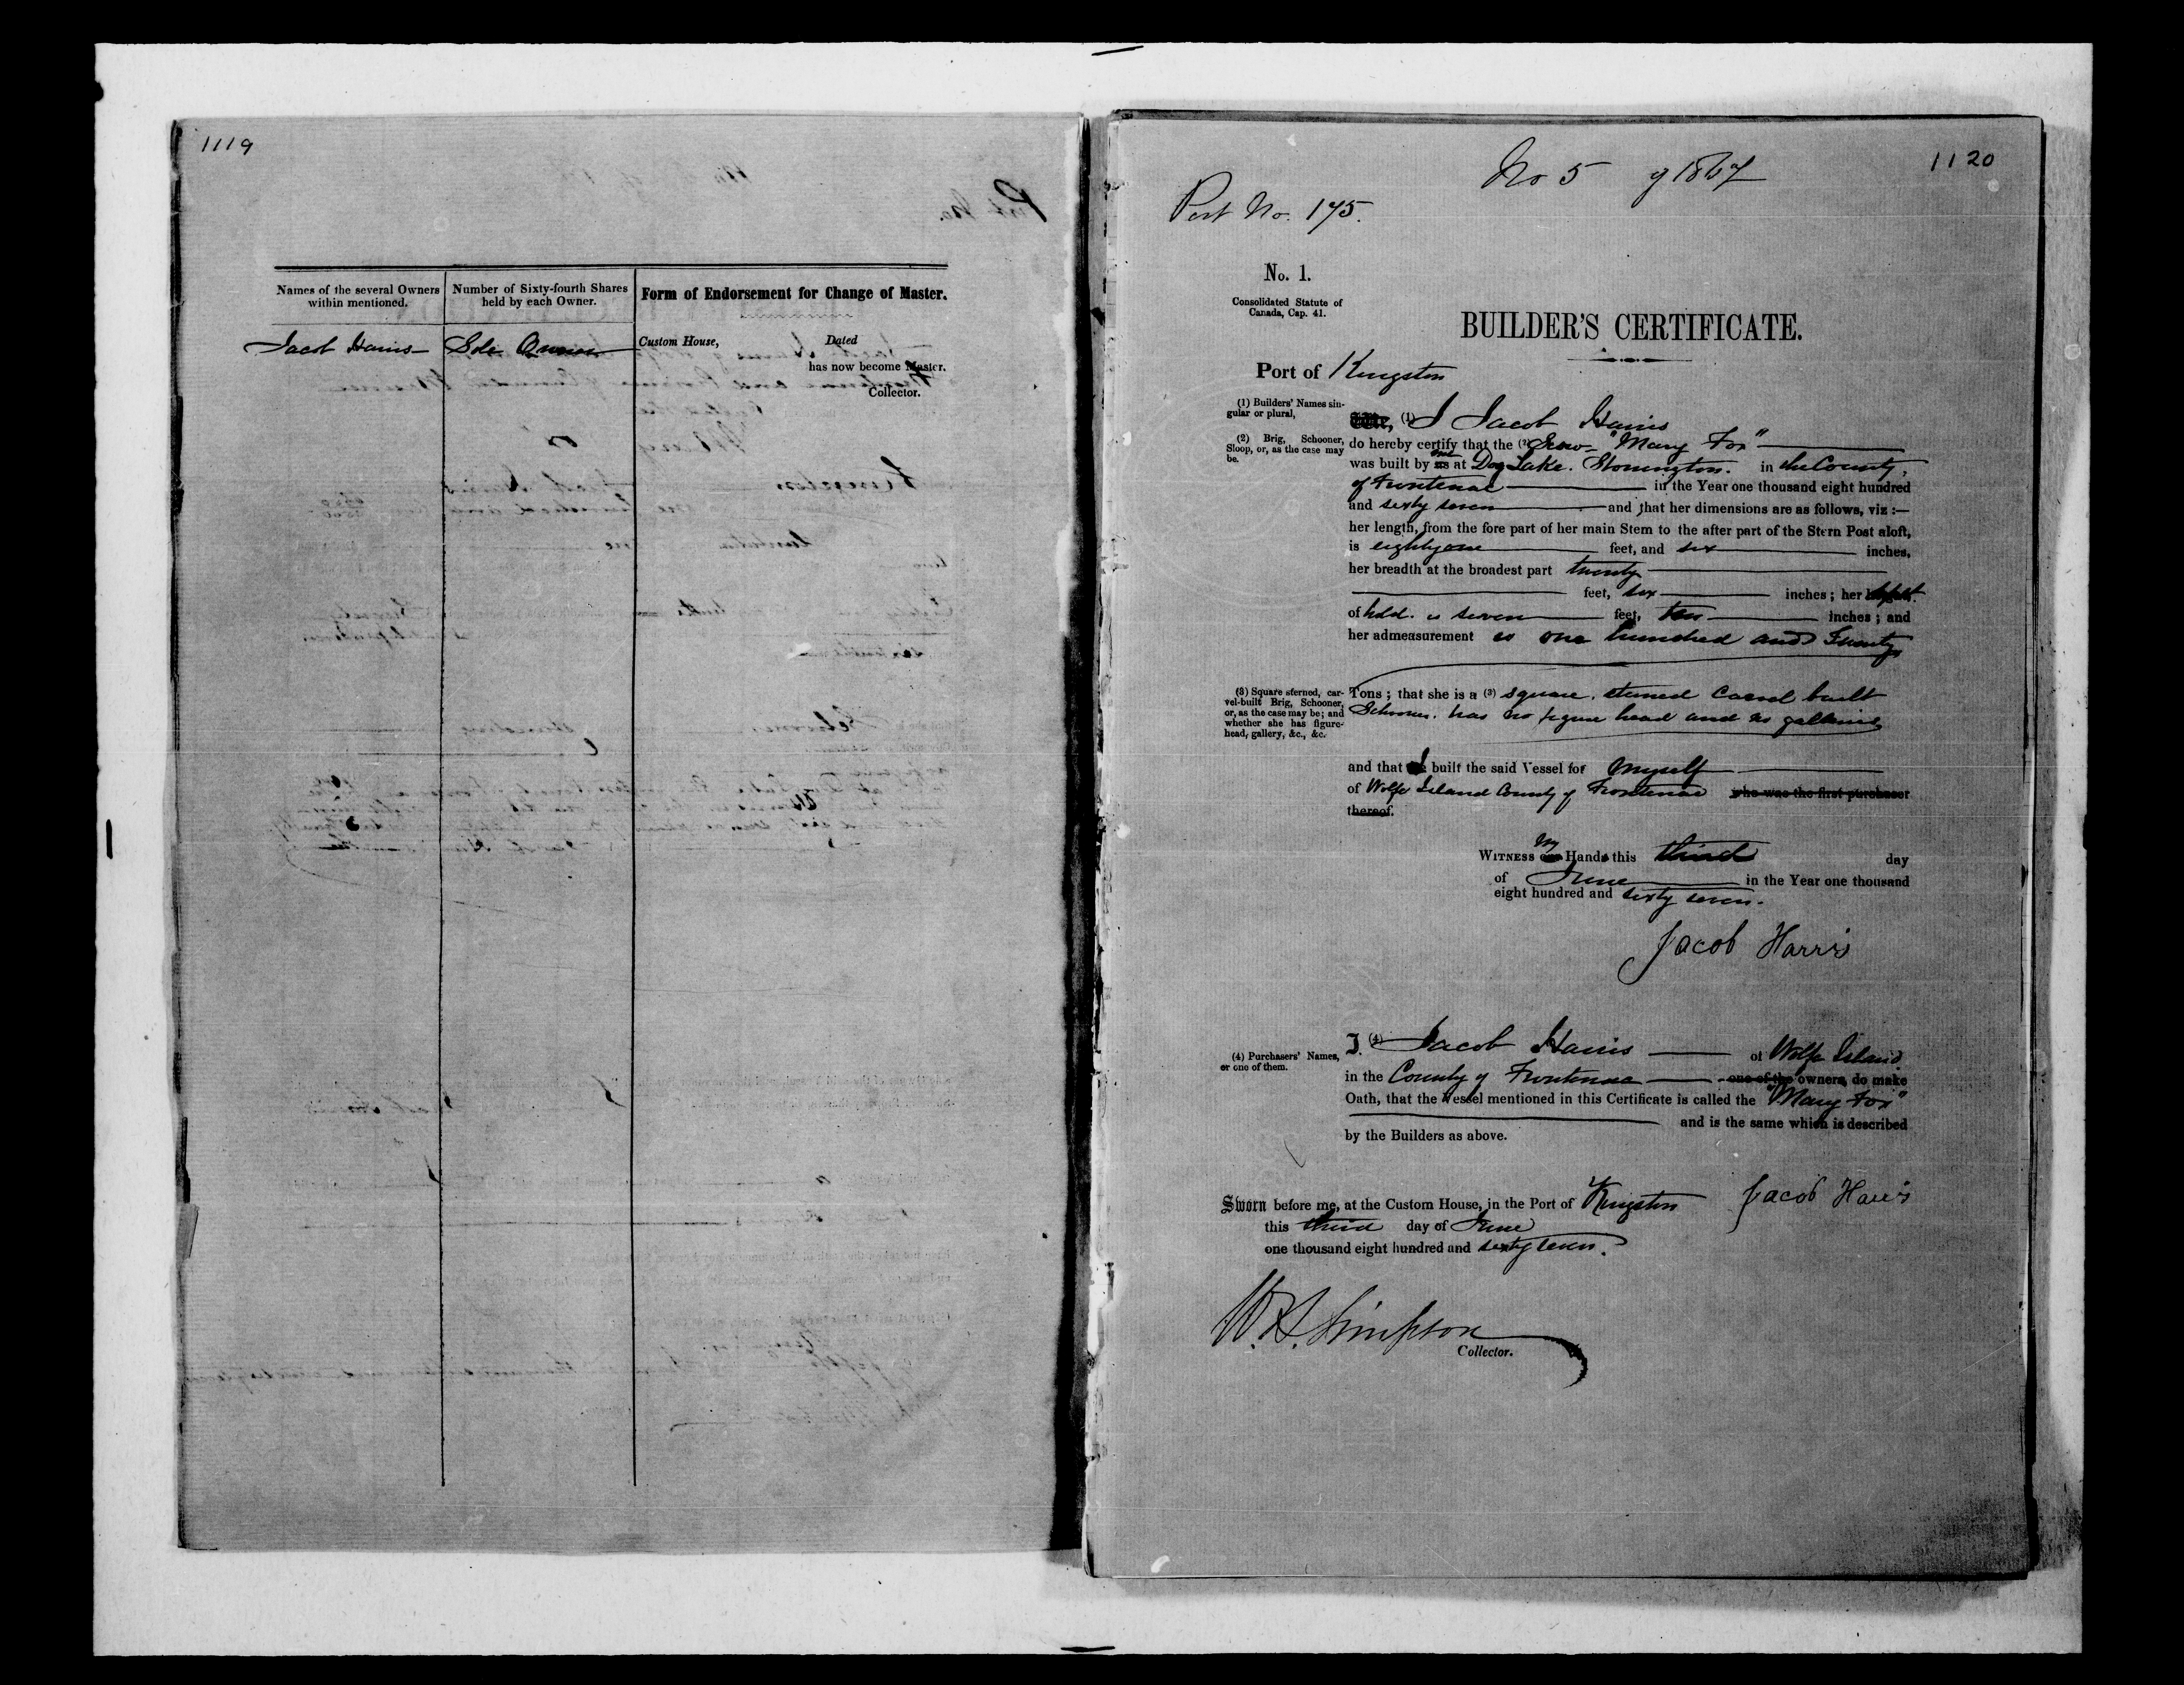 1119
Names of the several Owners within mentioned.
Number of Sixty-fourth Shares held by each Owner.
Form of Endorsement for Change of Master.
Jacob Harris
Sole Owner
Custom House, Dated
has now become Master.
Collector.
1120
No 5 of 1867
Port No. 175.
No. 1.
Consolidated Statute of
Canada, Cap. 41.
BUILDER'S CERTIFICATE.
Port of Kingston
(1) Builders' Names sin-
gular or plural,
(1) I Jacob Harris
(2) Brig, Schooner,
Sloop, or, as the case may
be.
do hereby certify that the (2) Scow "Mary Fox"
was built by us me at Dog Lake. Storrington. in the County
of Frontenac in the Year one thousand eight hundred
and sixty seven and that her dimensions are as follows, viz :—
her length, from the fore part of her main Stem to the after part of the Stern Post aloft,
is eighty one feet, and six inches,
her breadth at the broadest part twenty
feet, six inches ; her depth
of hold. is seven feet, ten inches ; and
her admeasurement is one hundred and Twenty
(3) Square sterned, car-
vel-built Brig, Schooner,
or, as the case may be; and
whether she has figure-
head, gallery, &c., &c.
Tons ; that she is a (3) square. sterned Carvel built
Schooner. has no figure head and no galleries
and that I built the said Vessel for myself
of Wolfe Island County of Frontenac who was the first purchaser
thereof.
WITNESS our My Hands this third day
of June in the Year one thousand
eight hundred and sixty seven.
Jacob Harris
(4) Purchasers' Names,
or one of them.
I. (4) Jacob Harris of Wolfe Island
in the County of Frontenac one of the owners, do make
Oath, that the Vessel mentioned in this Certificate is called the "Mary Fox"
and is the same which is described
by the Builders as above.
Sworn before me, at the Custom House, in the Port of Kingston Jacob Harris
this third day of June
one thousand eight hundred and sixty seven.
Simpson
Collector.